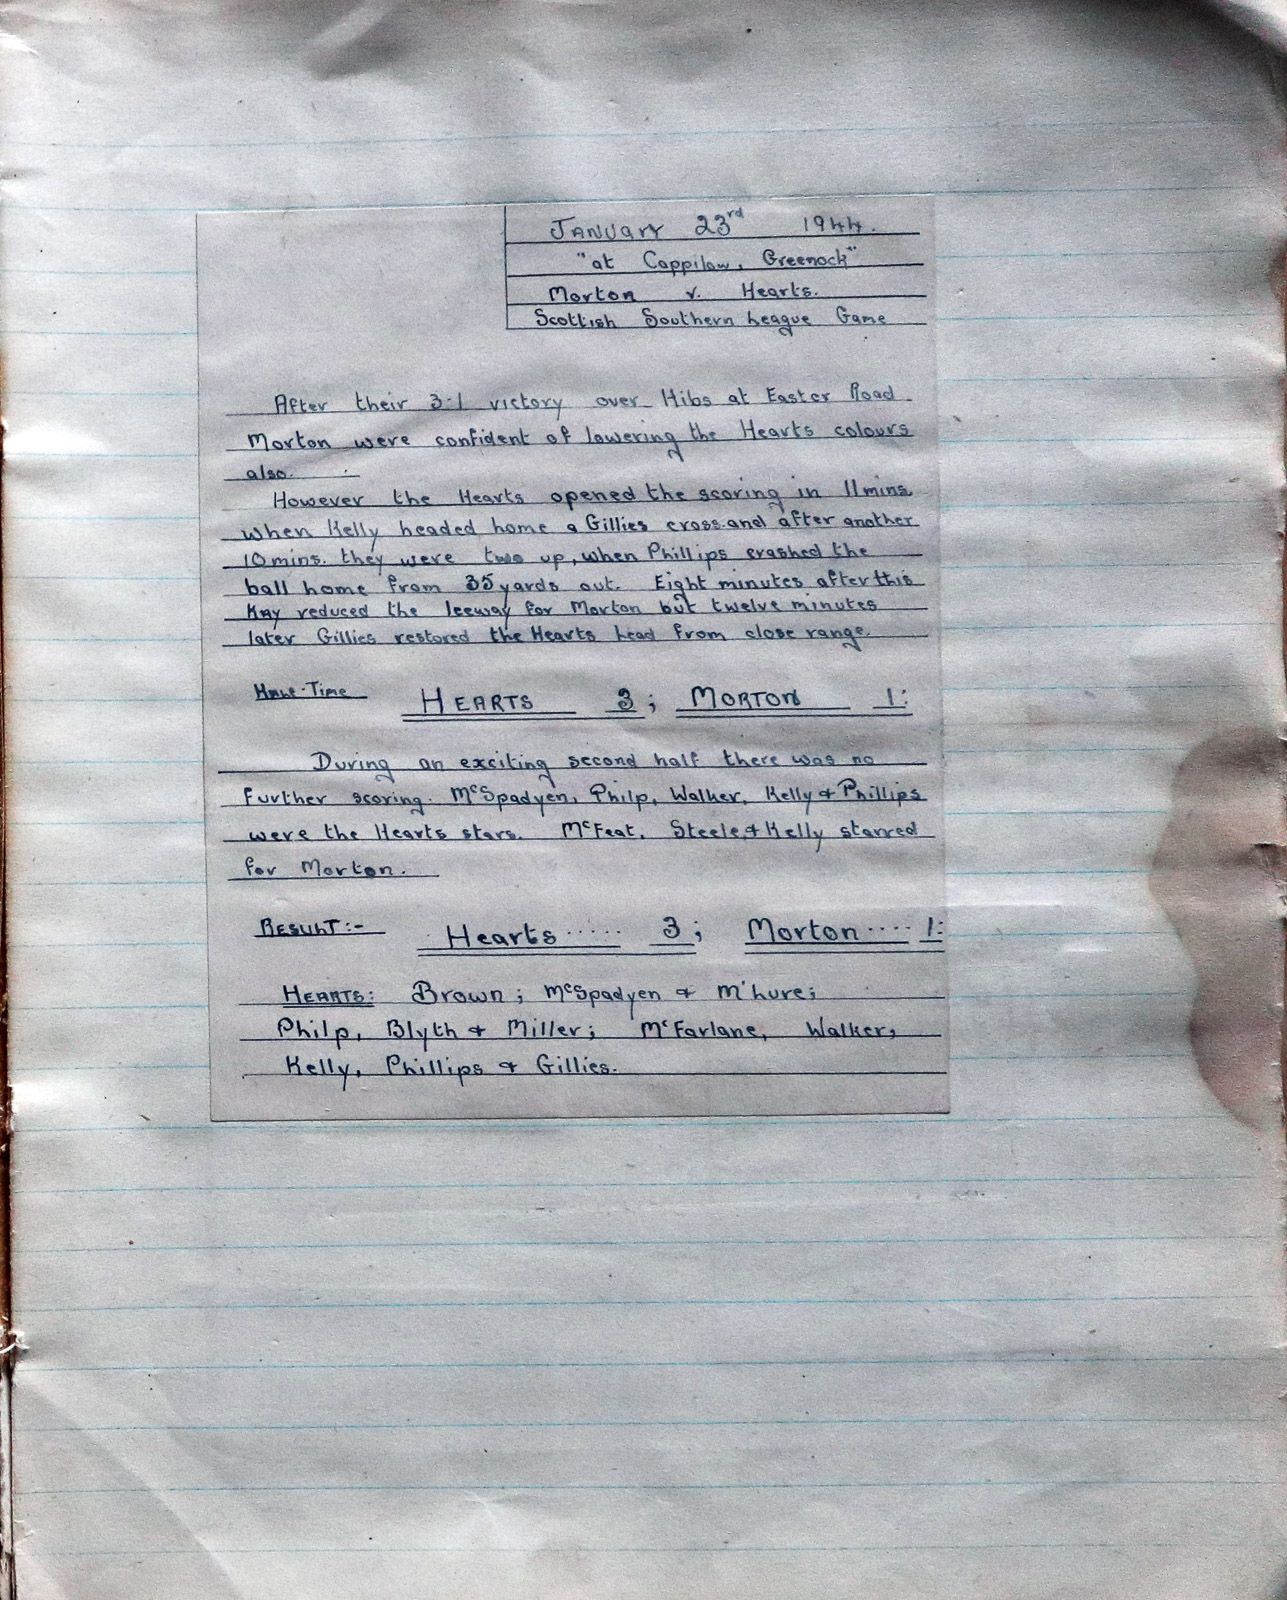 January 23rd 1944.
"at Cappilow, Greenock"
Morton v. Hearts.
Scottish Southern League Game
After their 3:1 victory over Hibs at Easter Road
Morton were confident of lowering the Hearts colours
also.
However the Hearts opened the scoring in 11 mins.
when Kelly headed home a Gillies cross.and after another
10 mins. they were two up, when Phillips crashed the
ball home from 35 yards out. Eight minutes after this
Kay reduced the leeway for Morton but twelve minutes
later Gillies restored the Hearts lead from close range.
HALF-TIME HEARTS 3; MORTON 1:
During an exciting second half there was no
further scoring. McSpadyen, Philp, Walker, Kelly & Phillips
were the Hearts stars. McFeat, Steele & Kelly starred
for Morton.
RESULT:- Hearts ..... 3; Morton .... 1:
HEARTS: Brown; McSpadyen & M'Lure;
Philp, Blyth & Miller; McFarlane, Walker,
Kelly, Phillips & Gillies.